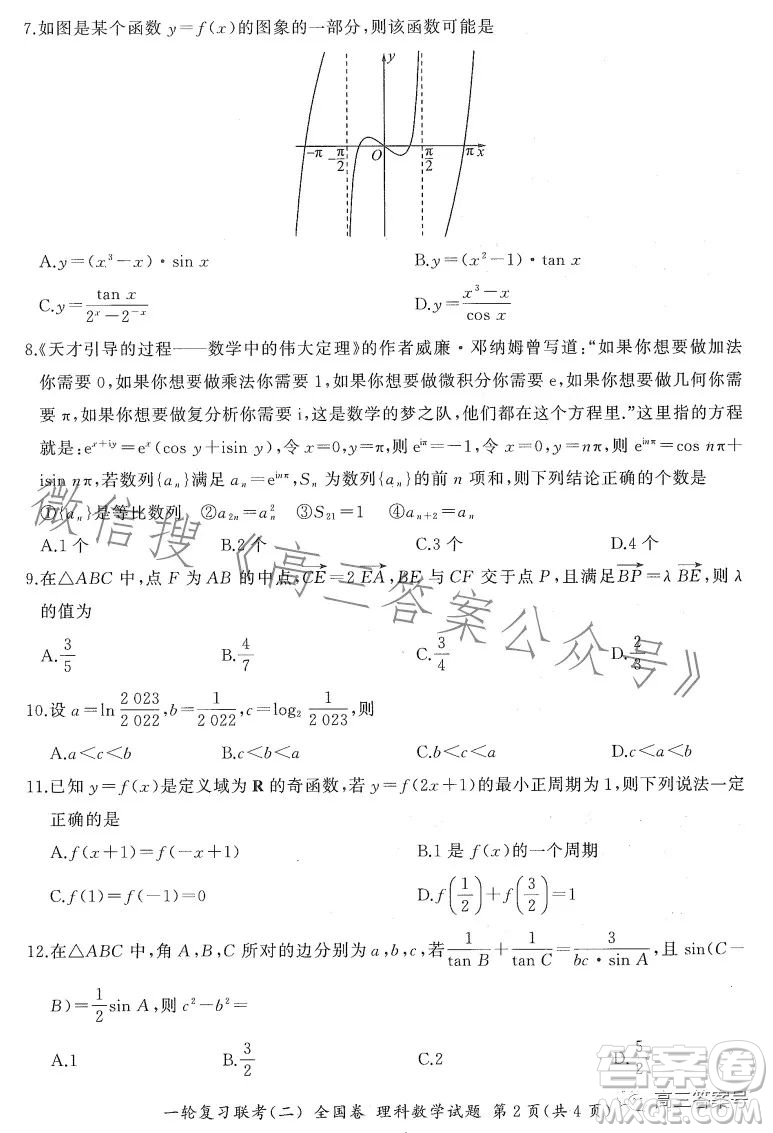 7.如图是某个函数 y=f(x)的图象的一部分,则该函数可能是
y
-π
-π/2
O
π/2
π
x
A.y=(x³-x)·sin x
B.y=(x²-1)·tan x
C.y=tan x/(2ˣ-2⁻ˣ)
D.y=(x³-x)/cos x
8.《天才引导的过程——数学中的伟大定理》的作者威廉·邓纳姆曾写道:“如果你想要做加法
你需要 0,如果你想要做乘法你需要 1,如果你想要做微积分你需要 e,如果你想要做几何你需
要 π,如果你想要做复分析你需要 i,这是数学的梦之队,他们都在这个方程里.”这里指的方程
就是:eˣ⁺ⁱʸ=eˣ(cos y+isin y),令 x=0,y=π,则 e^{iπ}=-1,令 x=0,y=nπ,则 e^{inπ}=cos nπ+
isin nπ,若数列{aₙ}满足 aₙ=e^{inπ},Sₙ 为数列{aₙ}的前 n 项和,则下列结论正确的个数是
①{aₙ}是等比数列 ②a₂ₙ=aₙ² ③S₂₁=1 ④aₙ₊₂=aₙ
A.1 个
B.2 个
C.3 个
D.4 个
9.在△ABC 中,点 F 为 AB 的中点,CE→=2 EA→,BE 与 CF 交于点 P,且满足BP→=λ BE→,则 λ
的值为
A.3/5
B.4/7
C.3/4
D.2/3
10.设 a=ln 2 023/2 022,b=1/2 022,c=log₂ 1/2 023,则
A.a<c<b
B.c<a<b
C.b<c<a
D.c<b<a
11.已知 y=f(x)是定义域为 R 的奇函数,若 y=f(2x+1)的最小正周期为 1,则下列说法一定
正确的是
A.f(x+1)=f(-x+1)
B.1 是 f(x)的一个周期
C.f(1)=f(-1)=0
D.f(1/2)+f(3/2)=1
12.在△ABC 中,角 A,B,C 所对的边分别为 a,b,c,若1/tan B+1/tan C=3/(bc·sin A),且 sin(C-
B)=1/2 sin A,则 c²-b²=
A.1
B.3/2
C.2
D.5/2
一轮复习联考(二) 全国卷 理科数学试题 第 2 页(共 4 页)
微信搜《高三答案公众号》
高三答案号
答案圈
MXQE.COM